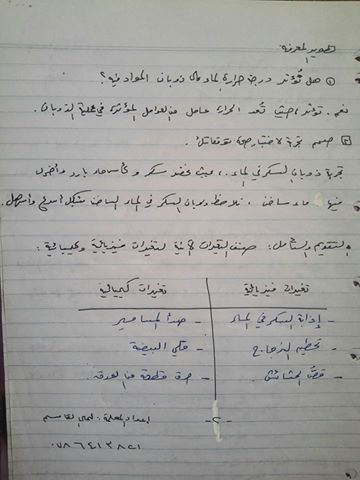 تطوير المعرفة
① هل تؤثر درجة حرارة الماء على ذوبان المواد فيه؟
نعم. تؤثر، حيث تُعد الحرارة عامل من العوامل المؤثرة في عملية الذوبان.
② صمم تجربة لاختبار صحة توقعاتك.
تجربة ذوبان السكر في الماء.. حيث نحضر سكر وكأس ماء بارد وآخر
فيها ماء ساخن. نلاحظ ذوبان السكر في الماء الساخن بشكل أسرع وأسهل.
التقويم والتأمل: صنف التغيرات الآتية لتغيرات فيزيائية وكيميائية:
تغيرات فيزيائية تغيرات كيميائية
- إذابة السكر في الماء - صدأ المسامير
- تحطيم الزجاج - قلي البيضة
- قصّ الحشائش - حرق قطعة من الورق
-٢- إعداد المعلمة: لمى القاسم